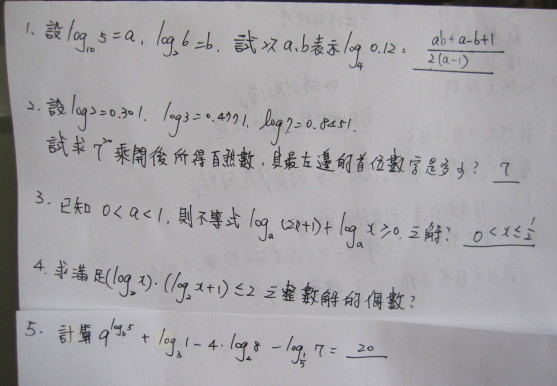 1. 設 log₁₀ 5 = a, log₂ 6 = b. 試以 a, b 表示 log₄ 0.12 = (ab+a-b+1)/(2(a-1))
2. 設 log2 = 0.301, log3 = 0.4771, log7 = 0.8451.
試求 7²⁰ 乘開後所得百數, 其最左邊的首位數字是多少? 7
3. 已知 0 < a < 1, 則不等式 logₐ (2x+1) + logₐ x ≥ 0 之解? 0 < x ≤ 1/2
4. 求滿足 (log₂ x)·(log₂ x+1) ≤ 2 之整數解的個數?
5. 計算 9^(log₃ 5) + log₃ 1 - 4·log₄ 8 - log 7 = 20